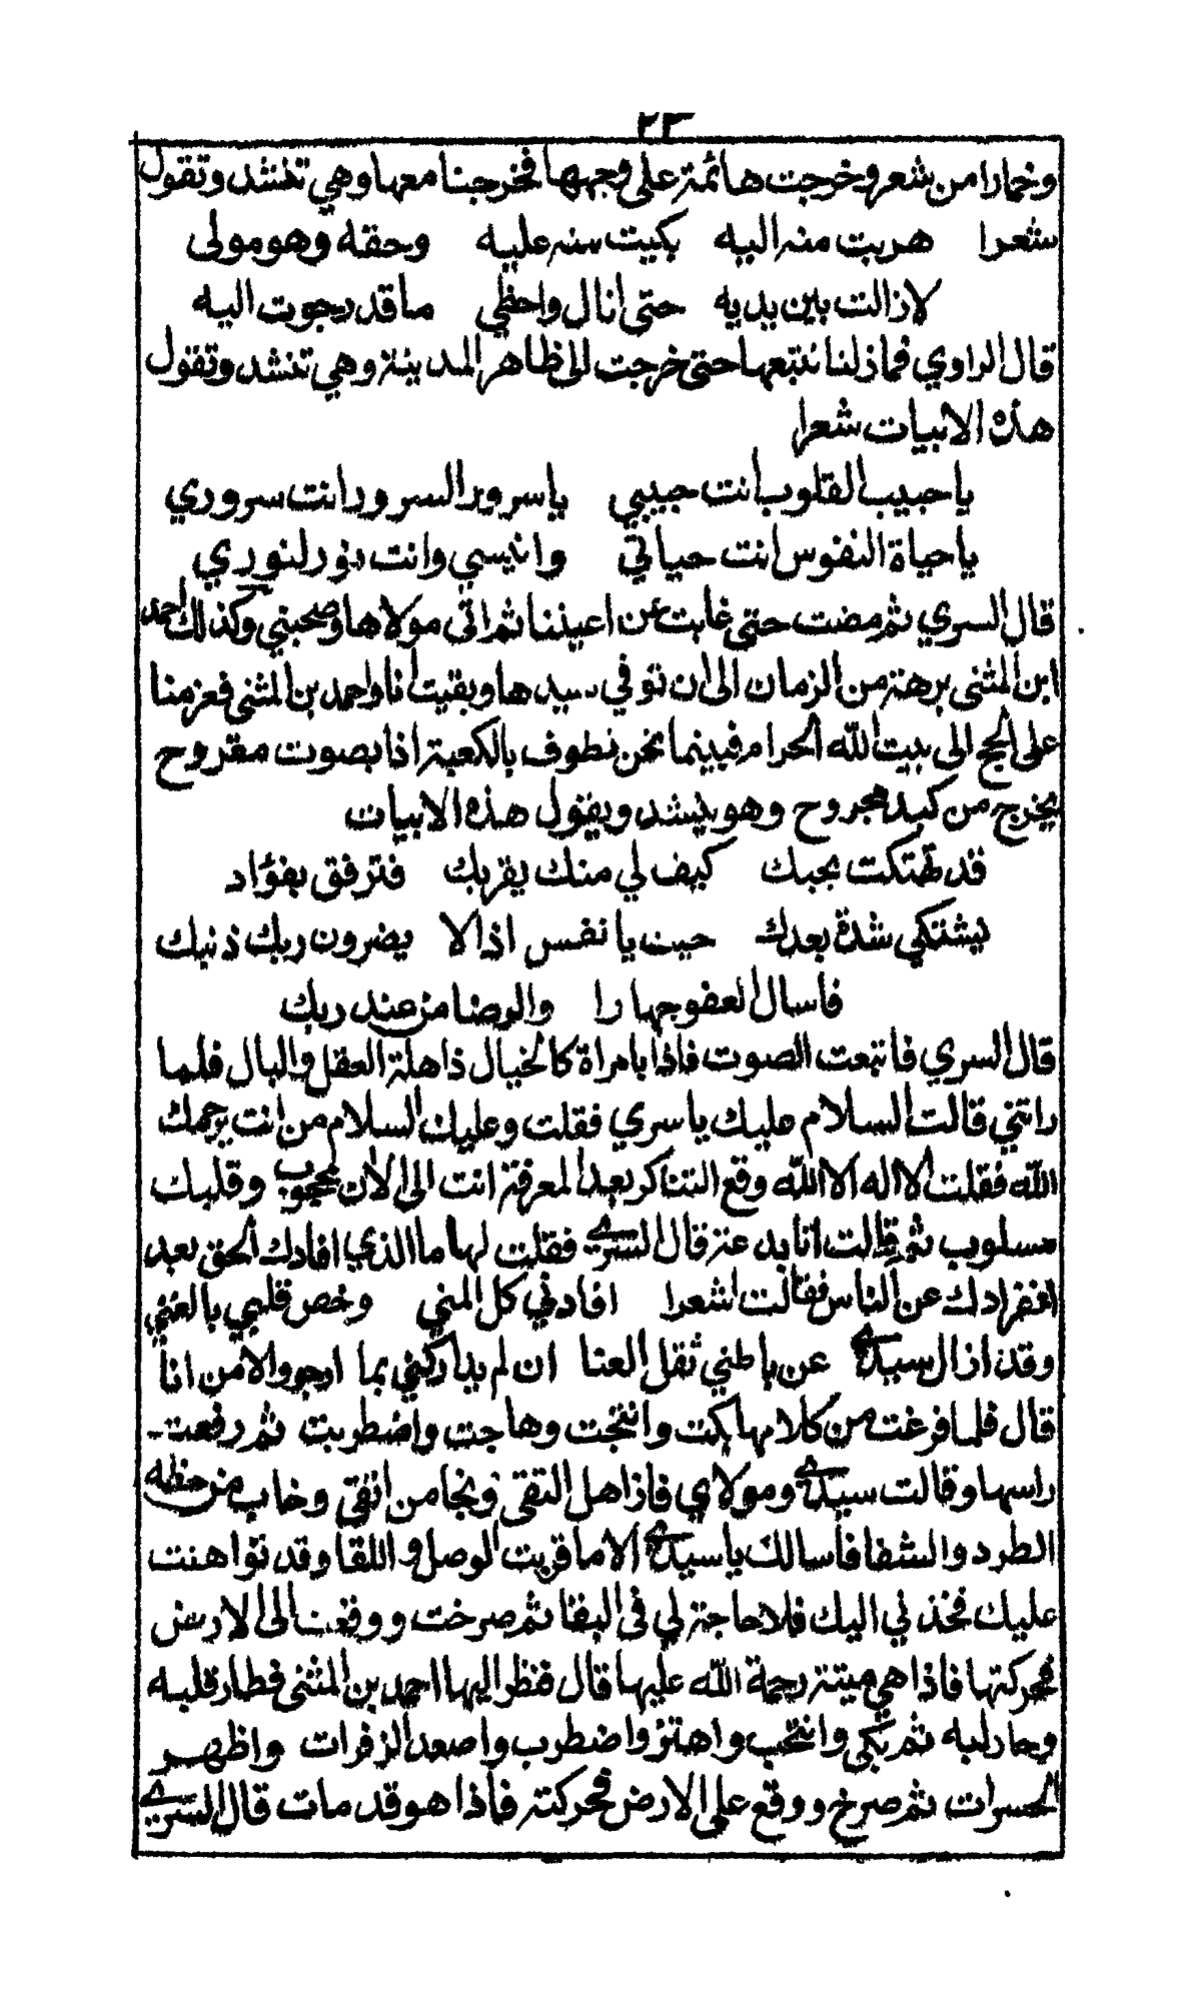 ٢٣
وخمارا من شعر وخرجت هائمة على وجهها فخرجنا معها وهي تنشد وتقول
شعرا هربت منه اليه بكيت منه عليه وحقه وهو مولى
لازالت بين يديه حتى انال واحظي ماقد رجوت اليه
قال الراوي فمازلنا نتبعها حتى خرجت الى ظاهر المدينة وهي تنشد وتقول
هذه الابيات شعرا
ياحبيب القلوب انت حبيبي ياسرور السرور انت سروري
ياحياة النفوس انت حياتي وانيسي وانت نور لنوري
قال السري ثم مضت حتى غابت عن اعيننا ثم اتى مولاها وصحبني وكذلك احمد
ابن المثنى برهة من الزمان الى ان توفي سيدها وبقيت انا واحمد بن المثنى فعزمنا
على الحج الى بيت الله الحرام فبينما نحن نطوف بالكعبة اذا بصوت مقروح
يخرج من كبد مجروح وهو ينشد ويقول هذه الابيات
قد تهتكت بحبك كيف لي منك بقربك فترفق بفؤاد
يشتكي شدة بعدك حين يا نفس اذا لا يضرون ربك ذنبك
فاسال العفو جهارا والرضا من عند ربك
قال السري فاتبعت الصوت فاذا بامراة كالخيال ذاهلة العقل والبال فلما
راتني قالت السلام عليك ياسري فقلت وعليك السلام من انت يرحمك
الله فقلت لا اله الا الله وقع التناكر بعد المعرفة انت الى الان محجوب وقلبك
مسلوب ثم قالت انا بدعة قال السري فقلت لها ما الذي افادك الحق بعد
انفرادك عن الناس فقالت شعرا افادني كل المنى وخص قلبي بالغنى
وقد ازال سيدي عن باطني ثقل العنا ان لم يداركني بما ارجو والا من انا
قال فلما فرغت من كلامها بكت وانتحبت وهاجت واضطربت ثم رفعت
راسها وقالت سيدي ومولاي فاز اهل التقى ونجا من اتقى وخاب من حظه
الطرد والشقا فاسالك ياسيدي الا ما قربت الوصل و اللقا وقد تواهنت
عليك فخذني اليك فلا حاجة لي في البقا ثم صرخت ووقعت الى الارض
فحركتها فاذا هي ميتة رحمة الله عليها قال فنظر اليها احمد بن المثنى فطار قلبه
وحار لبه ثم بكى وانتحب واهتز واضطرب واصعد الزفرات واظهر
الحسرات ثم صرخ ووقع على الارض فحركته فاذا هو قد مات قال السري